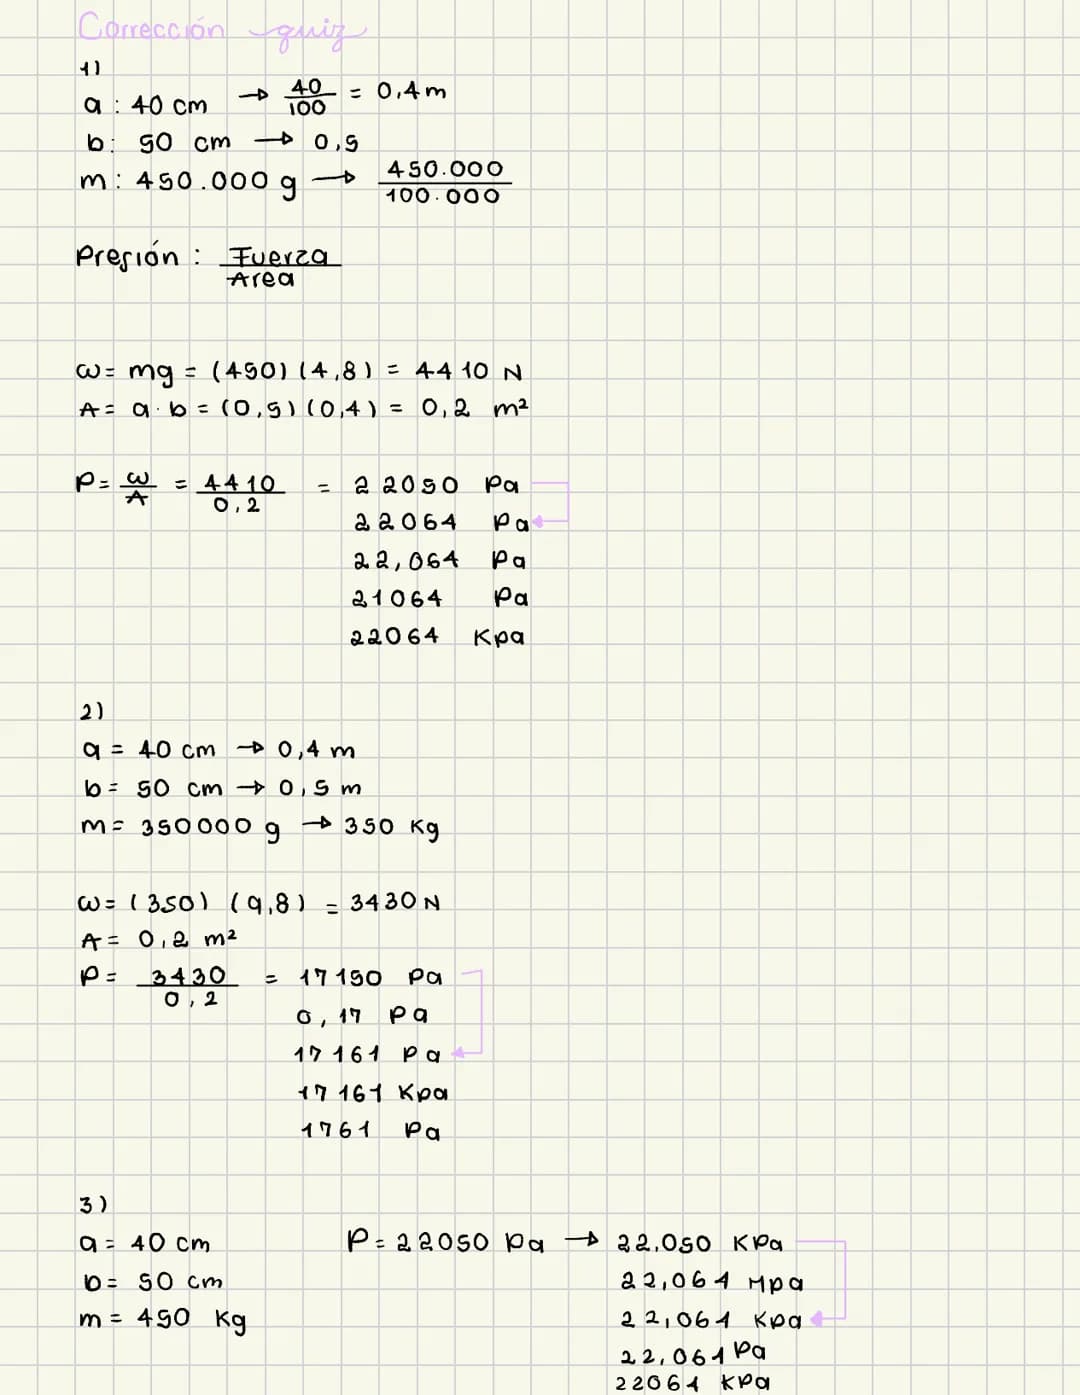 Corrección quiz
1)
a : 40 cm → 40/100 = 0,4 m
b: 50 cm → 0,5
m: 450.000 g → 450.000/100.000
Presión : Fuerza/Area
ω= mg = (450) (4,8) = 4410 N
A= a·b = (0,5) (0,4) = 0,2 m²
P= ω/A = 4410/0,2 = 22050 Pa
22064 Pa
22,064 Pa
21064 Pa
22064 Kpa
2)
a = 40 cm → 0,4 m
b= 50 cm → 0,5 m
m= 350000 g → 350 Kg
ω= (350) (9,8) = 3430 N
A= 0,2 m²
P= 3430/0,2 = 17150 Pa
0,17 Pa
17161 Pa
17161 Kpa
1761 Pa
3)
a= 40 cm P= 22050 Pa → 22,050 KPa
b= 50 cm 22,064 Mpa
m= 450 Kg 22,064 Kpa
22,064 Pa
22064 KPa